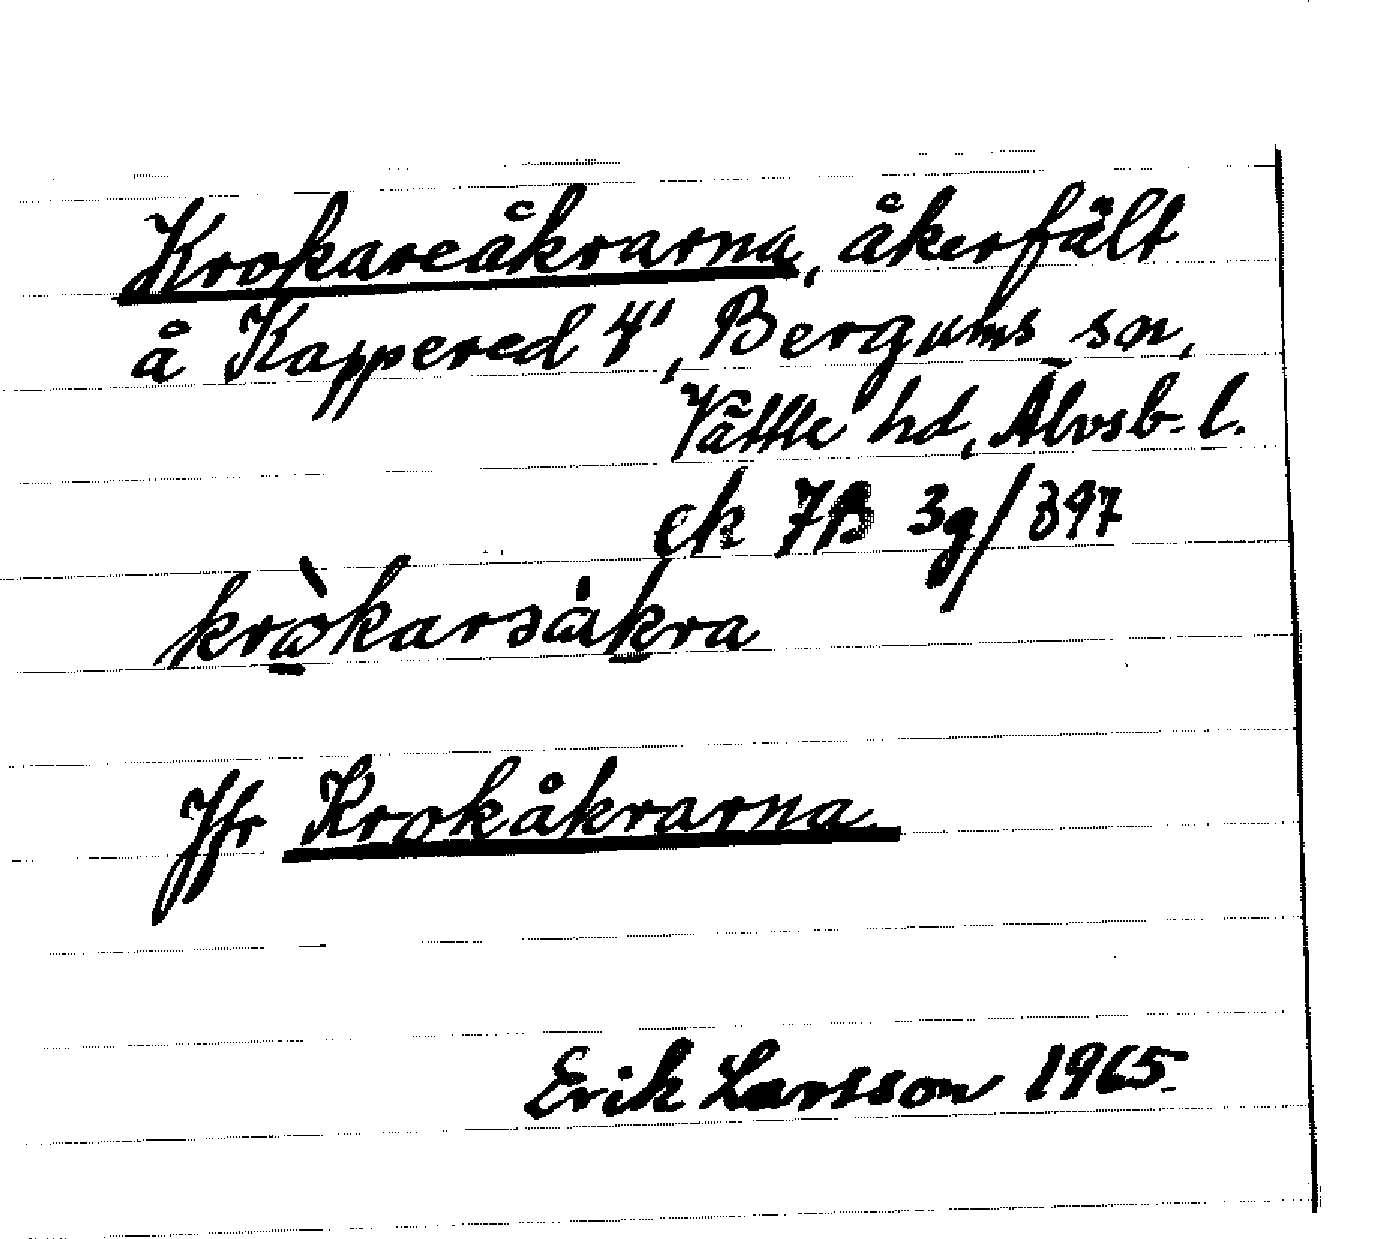 Krokareåkrarna, åkerfält
å Kappered 4¹, Bergums sn,
Vättle hd, Älvsb. l.
ek 7B 3g/897
Jfr Krokåkrarna
Erik Larsson 1965